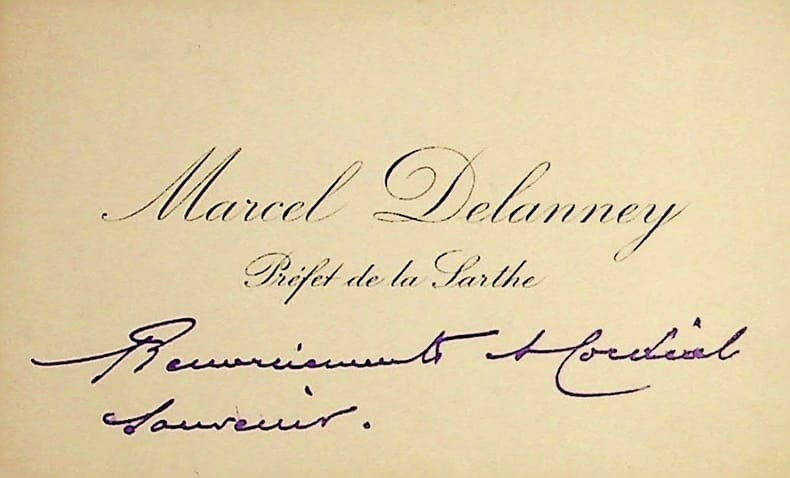 Marcel Delanney
Préfet de la Sarthe
Remerciements & Cordial
Souvenir.